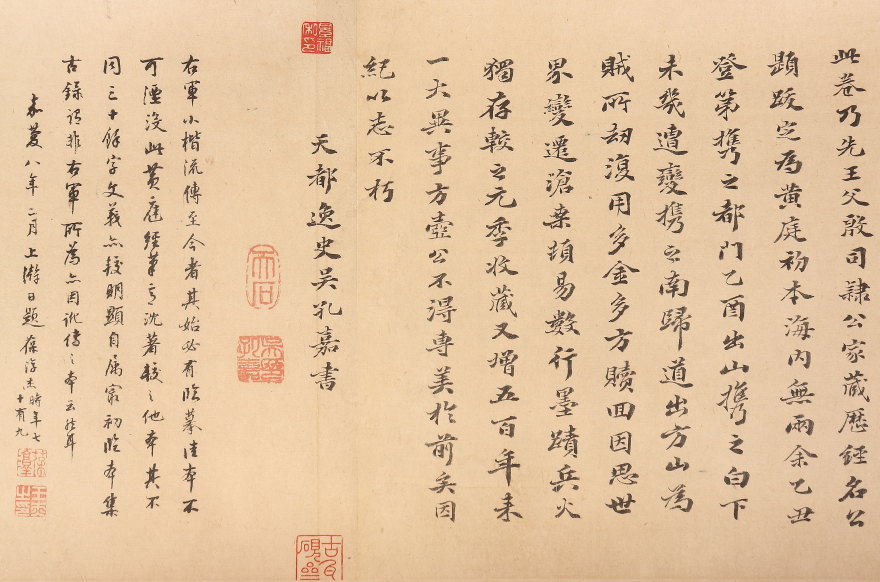 此卷乃先王父殷司隸公家藏歷經名公
題跋定為黃庭初本海內無兩余乙丑
登第攜之都門乙酉出山攜之白下
未幾遭變攜之南歸道出方山為
賊所劫復用多金多方贖回因思世
界變遷滄桑頻易數行墨蹟兵火
獨存較之元季收藏又增五百年来
一大異事方壺公不得專美於前矣因
紀以志不朽
天都逸史吳孔嘉書
右軍小楷流傳至今者其始必有臨摹佳本不
可湮沒此黃庭經筆意沈著較之他本其不
同三十餘字文義亦較明顯自屬宋初臨本集
古錄謂非右軍所為亦因訛傳之本云然耳
嘉慶八年二月上澣日題 時年七
十有九